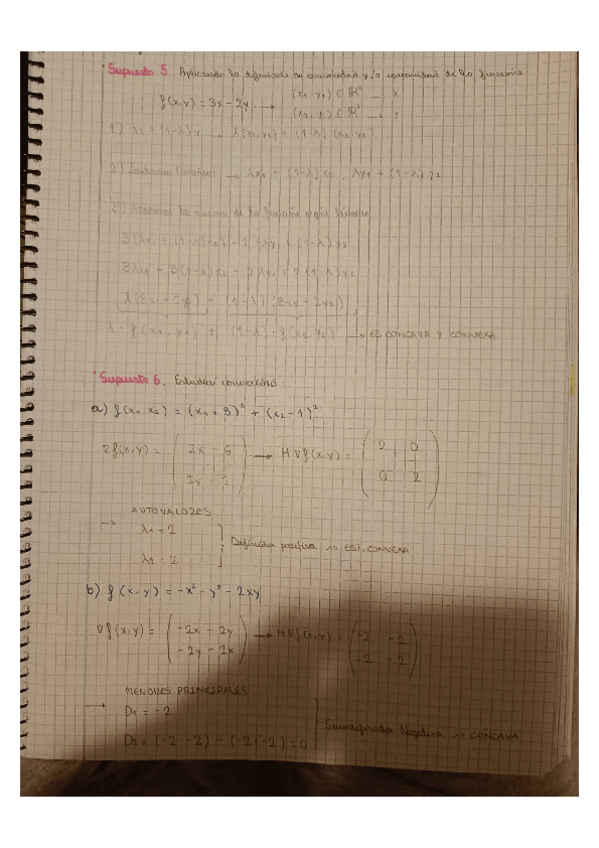 · Supuesto 5. Aplicando la definición de concavidad y/o convexidad de la función
f(x,y) = 3x - 2y → (x₁, y₁) ∈ ℝ² → x
(x₂, y₂) ∈ ℝ² → y
1º) λx + (1-λ)y → λ(x₁, y₁) + (1-λ)(x₂, y₂)
2º) → λx₁ + (1-λ)x₂, λy₁ + (1-λ)y₂
3º) de la función
3(λx₁ + (1-λ)x₂) - 2(λy₁ + (1-λ)y₂
3λx₁ + 3(1-λ)x₂ - 2λy₁ - 2(1-λ)y₂
λ(3x₁ - 2y₁) + (1-λ)(3x₂ - 2y₂)
λ · f(x₁, y₁) + (1-λ) · f(x₂, y₂) → ES CONCAVA Y CONVEXA
· Supuesto 6. Estudiar convexidad:
a) f(x₁, x₂) = (x₁ + 3)² + (x₂ - 1)²
∇f(x,y) = ( 2x - 6 → H∇f(x,y) = ( 2 0
2y - 2 ) 0 2 )
→ AUTOVALORES
λ₁ = 2
λ₂ = 2
Definida positiva → EST. CONVEXA
b) f(x,y) = -x² - y² - 2xy
∇f(x,y) = ( -2x - 2y → H∇f(x,y) = ( -2 -2
-2y - 2x ) -2 -2 )
→ MENORES PRINCIPALES
D₁ = -2
D₂ = (-2·-2) - (-2·-2) = 0
Semidefinida Negativa → CONCAVA